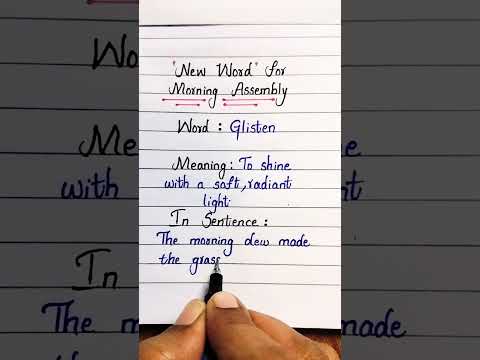 "New Word" for
Morning Assembly
Word : Glisten
Meaning : To shine
with a soft, radiant
light.
In Sentence :
The morning dew made
the grass